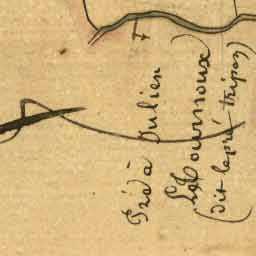 Pré à Julien
Le Tournoux
(dit le pié tripon)